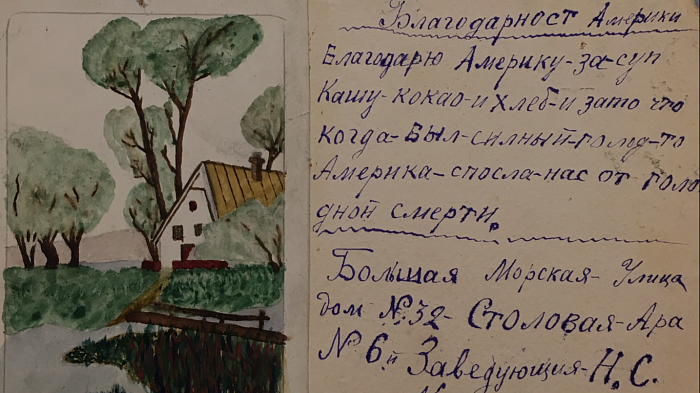 Благодарност Америки
Благодарю Америку-за-суп
Кашу-кокао-и хлеб-и зато что
когда-был-силный-голод-то
Америка-спосла-нас от голо
дной смерти.
Болшая Морская-Улица
дом №32-Столовая-Ара
№ 6й Заведующия-Н.С.